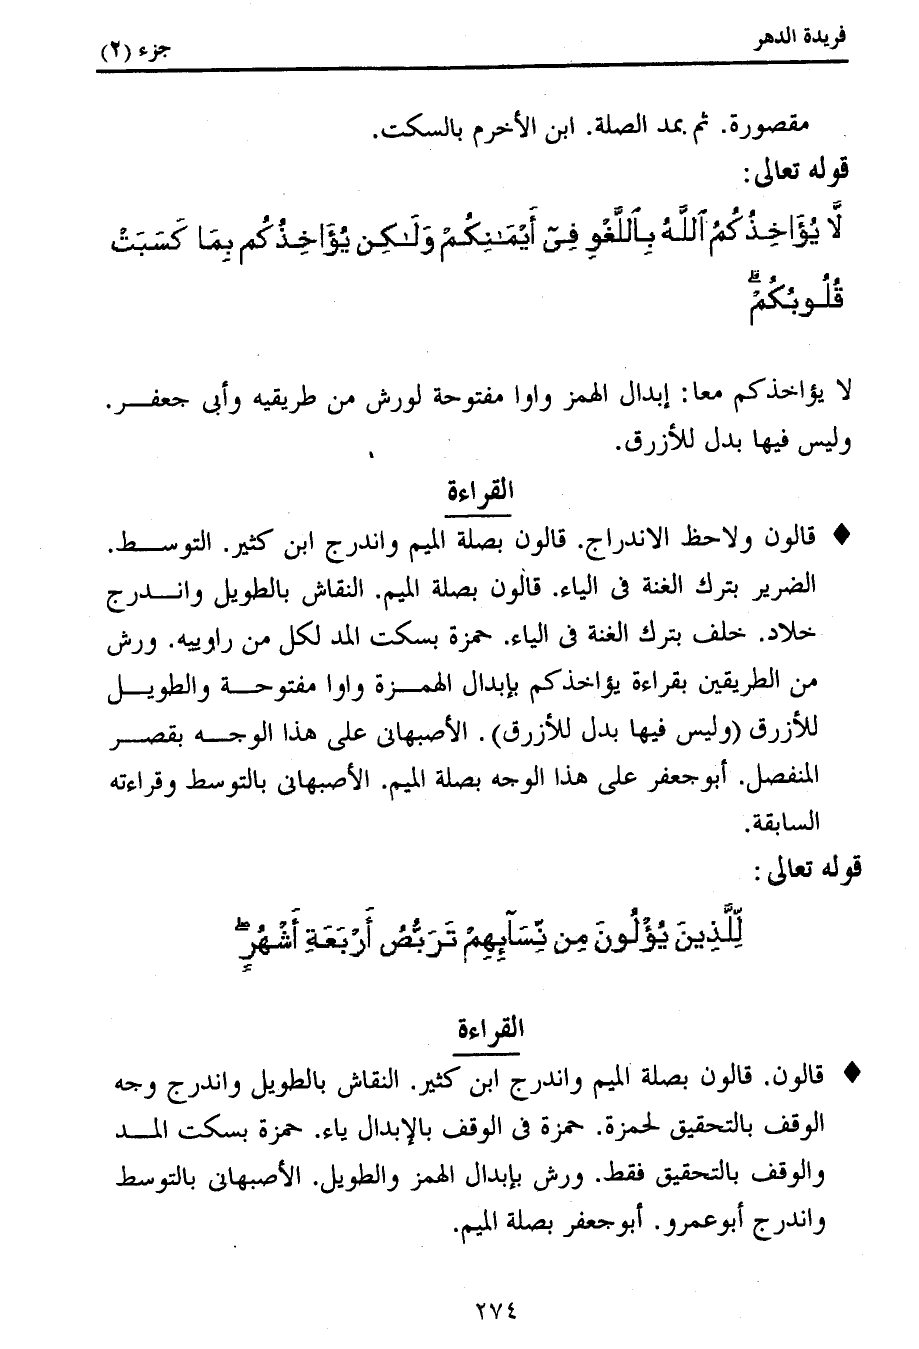 فريدة الدهر
جزء (٢)
مقصورة. ثم بمد الصلة. ابن الأخرم بالسكت.
قوله تعالى:
لَّا يُؤَاخِذُكُمُ ٱللَّهُ بِٱللَّغْوِ فِىٓ أَيْمَـٰنِكُمْ وَلَـٰكِن يُؤَاخِذُكُم بِمَا كَسَبَتْ
قُلُوبُكُمْ ۗ
لا يؤاخذكم معا: إبدال الهمز واوا مفتوحة لورش من طريقيه وأبى جعفـــر.
وليس فيها بدل للأزرق.
القراءة
♦ قالون ولاحظ الاندراج. قالون بصلة الميم واندرج ابن كثير. التوســـط.
الضرير بترك الغنة فى الياء. قالون بصلة الميم. النقاش بالطويل وانـــدرج
خلاد. خلف بترك الغنة فى الياء. حمزة بسكت المد لكل من راوييه. ورش
من الطريقين بقراءة يؤاخذكم بإبدال الهمـــزة واوا مفتوحـــة والطويـــل
للأزرق (وليس فيها بدل للأزرق). الأصبهانى على هذا الوجـــه بقصـــر
المنفصل. أبوجعفر على هذا الوجه بصلة الميم. الأصبهانى بالتوسط وقراءته
السابقة.
قوله تعالى:
لِّلَّذِينَ يُؤْلُونَ مِن نِّسَآئِهِمْ تَرَبُّصُ أَرْبَعَةِ أَشْهُرٍ ۖ
القراءة
♦ قالون. قالون بصلة الميم واندرج ابن كثير. النقاش بالطويل واندرج وجه
الوقف بالتحقيق لحمزة. حمزة فى الوقف بالإبدال ياء. حمزة بسكت المـــد
والوقف بالتحقيق فقط. ورش بإبدال الهمز والطويل. الأصبهانى بالتوسط
واندرج أبوعمرو. أبوجعفر بصلة الميم.
٢٧٤